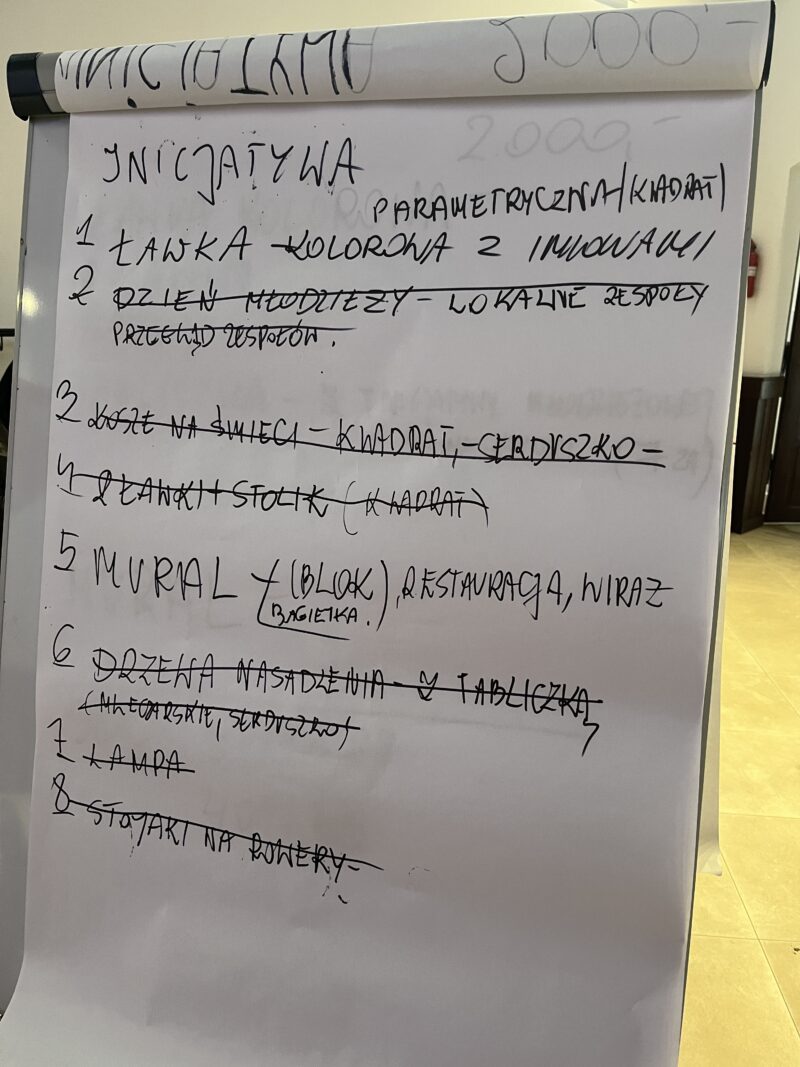 INICJATYWA 5000,-
2.000,-
INICJATYWA
PARAMETRYCZNA/KWADRAT/
1 ŁAWKA KOLOROWA Z IMIONAMI
2 DZIEŃ MŁODZIEŻY - LOKALNE ZESPOŁY
PRZEGLĄD ZESPOŁÓW.
3 KOSZE NA ŚMIECI - KWADRAT, - SERDUSZKO -
4 2 ŁAWKI + STOLIK (KWADRAT)
5 MURAL - (BLOK), RESTAURACJA, WIRAZ
BAGIETKA.
6 DRZEWA NASADZENIA - Z TABLICZKĄ
(MLECZARSKIE, SERDUSZKO)
7 LAMPA
8 STOJAKI NA ROWERY -